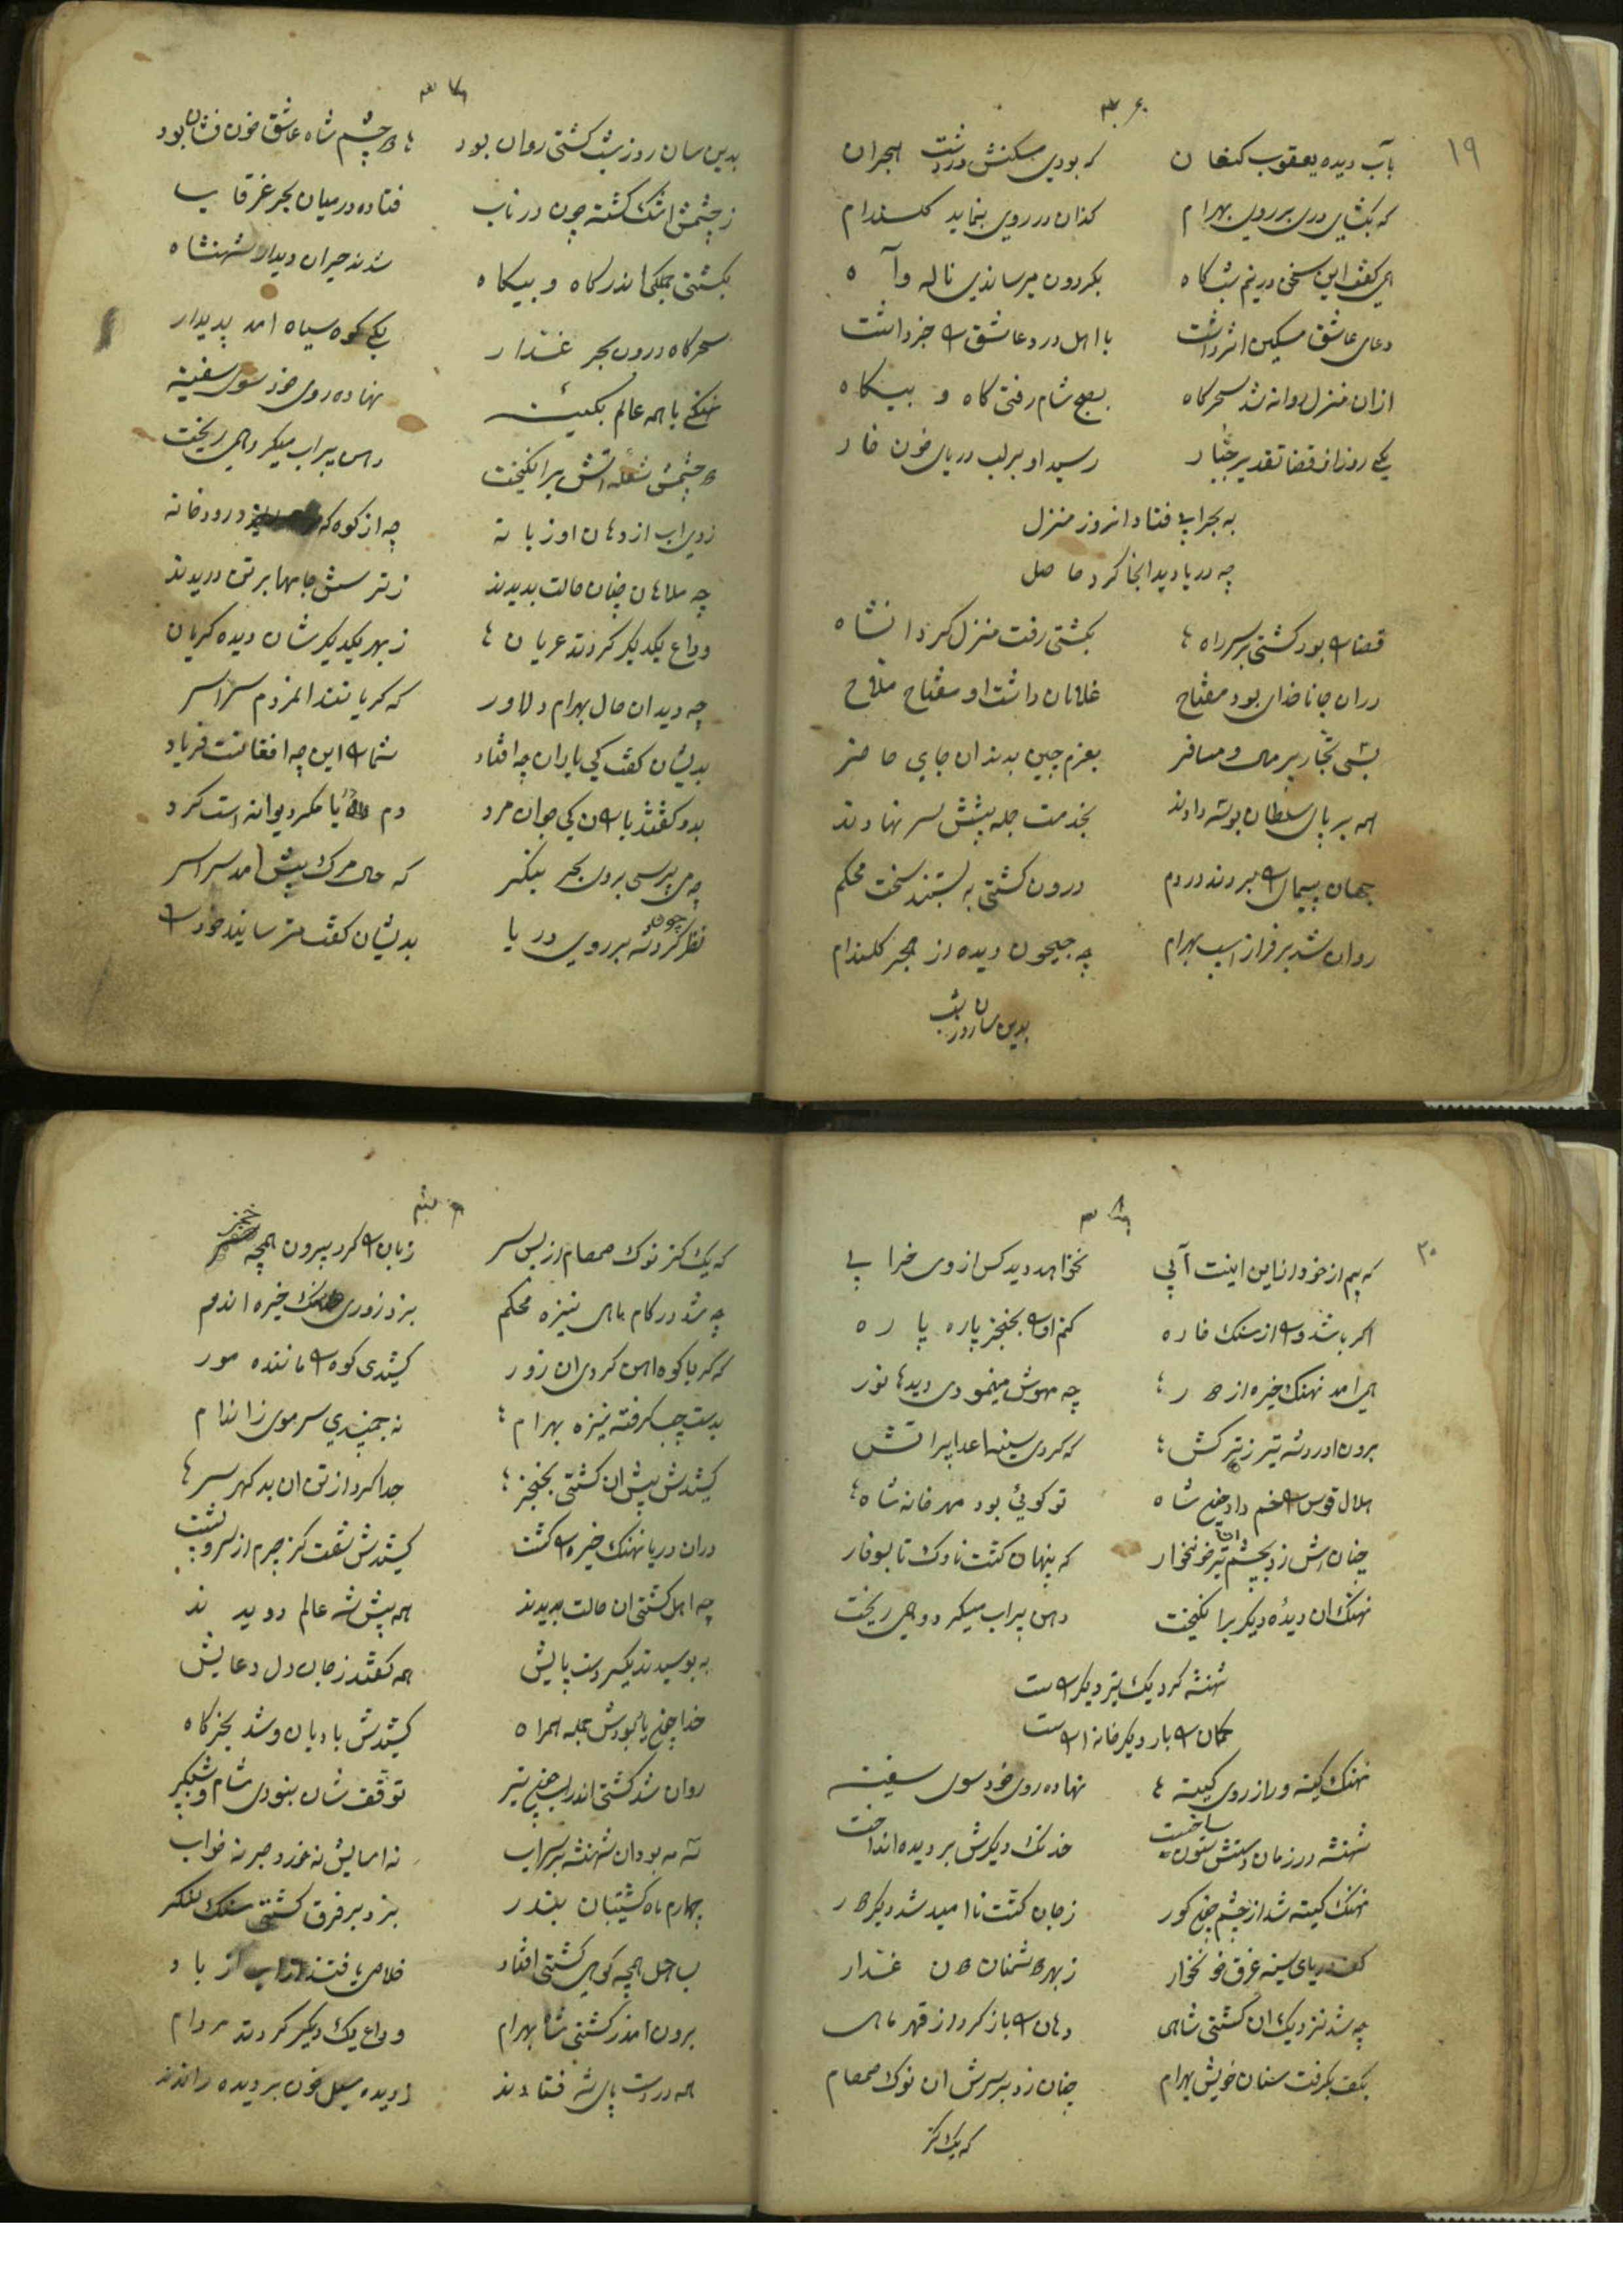 ۱۹
بآب دیده یعقوب کنعان که بودی مسکنش در دشت هجران
که بکشای دری بر روی بهرام کزان در روی بنماید کلندام
همی کفت این سخن در نیم شب کاه بکردون میرساندی ناله و آه
دعای عاشق مسکین اثر داشت با اهل درد عاشق را خبر داشت
ازان منزل روانه شد سحرکاه بصبح شام رفتی کاه و بیکاه
یکی روز از قضا تقدیر جبار رسید او بر لب دریای خون خار
به بحرابی فتاد انروز منزل
چه دریا دید انجا کرد حاصل
قضا را بود کشتی بر سر راه بکشتی رفت منزل کرد انشاه
دران جا ناخدای بود مفتاح غلامان داشت او مفتاح ملاح
بسی تجار پر مال و مسافر بعزم چین بدند ان جای حاضر
همه بر پای سلطان بوسه دادند بخدمت جمله پیشش سر نهادند
جهان پیمای را بردند در دم درون کشتی به بستند سخت محکم
روان شد بر فراز اسب بهرام چه جیحون دیده از هجر کلندام
بدین سان روز شب
بدین سان روز شب کشتی روان بود دو چشم شاه عاشق خون فشان بود
ز چشمش اشک کشته چون در ناب فتاده در میان بحر غرقاب
بکشتی جملکی اندر کاه و بیکاه شدند حیران دیدار شهنشاه
سحرکاه درون بحر غدار یکی کوه سیاه امد پدیدار
نهنکی با همه عالم بکینه نهاده روی خود سوی سفینه
دو چشمش شعله اتش برانکیخت دهن پر اب میکرد و همی ریخت
زدی اب از دهان او زبانه چه از کوه که رودخانه
چه ملاحان چنان حالت بدیدند ز ترسش جامها بر تن دریدند
وداع یکدیکر کردند عریان ز بهر یکدیکر شان دیده کریان
چه دید ان حال بهرام دلاور که کریانند ان مردم سراسر
بدیشان کفت کی یاران چه افتاد شما را این چه افغانست فریاد
بدو کفتند یاران کی جوان مرد دم مکر دیوانه است کرد
چه می پرسی برون بحر بنکر که حال مرک پیش امد سراسر
نظر چون کرد شه بر روی دریا بدیشان کفت مترسانید خود را
۲۰
که بیم از خود ازین اینت آبی نخواهد دید کس از وی خرابی
اکر باشد وی از سنک خاره کنم او را بخنجر پاره پاره
همی امد نهنک خیره از دور چه مهوش مینمودی دیدها نور
برون اورد شه تیر ز ترکش که کردی سینه اعدا پر اتش
هلال قوس را خم داد چون شاه تو کوئی بود مهر خانه شاه
چنان اش زد بچشم ان تیر خونخوار که پنهان کشت ناوک تا بسوفار
نهنک ان دیده دیکر برانکیخت دهن پر اب میکرد و همی ریخت
شهنشه کرد یک تیر دیکر راست
کمان را بار دیکر خانه اراست
نهنک کینه ور از روی کینه نهاده روی خود سوی سفینه
شهنشه در زمان دستش ستون ساخت خدنک دیکرش بر دیده انداخت
نهنک کینه شد از چشم چون کور ز جان کشت نا امید شد دیکر دور
دریای سینه غرق خونخوار ز بهر دشمنان دون غدار
چه شد نزدیک ان کشتی شاهی دهان را باز کرد از قهر ماهی
بکف بکرفت سنان خویش بهرام چنان زد بر سرش ان نوک صمصام
که یک کز
که یک کز نوک صمصام از پس سر زبان را کرد بیرون همچه خنجر
چه شد در کام ماهی نیزه محکم بزد زوری نهنک خیره اندم
که کر با کوه اهن کردی ان زور کشیدی کوه را ماننده مور
بدست چپ کرفته نیزه بهرام نه جنبیدی سر موی ز اندام
کشیدش پیش ان کشتی بخنجر جدا کرد از تن ان بد کهر سر
دران دریا نهنک خیره را کشت کشیدش شفت کز جرم از سر و پشت
چه اهل کشتی ان حالت بدیدند همه پیش شه عالم دویدند
به بوسیدند یکسر دست پایش همه کفتند ز جان دل دعایش
خدا چون یار بودش جمله همراه کشیدش بادبان و شد بخرکاه
روان شد کشتی اندر اب چون تیر توقف شان بنودی شام و شبکیر
سه مه بود ان شهنشه بر سر اب نه اسایش نه خورد و صبر نه خواب
چهارم ماه کشتیبان بندر بزد بر فرق کشتی سنک لنکر
بساحل همچه کوهی کشتی افتاد خلاص یافتند از باد
برون امد ز کشتی شاه بهرام وداع یک دیکر کردند مردم
همه در دست پای شه فتادند ز دیده سیل خون بر دیده راندند